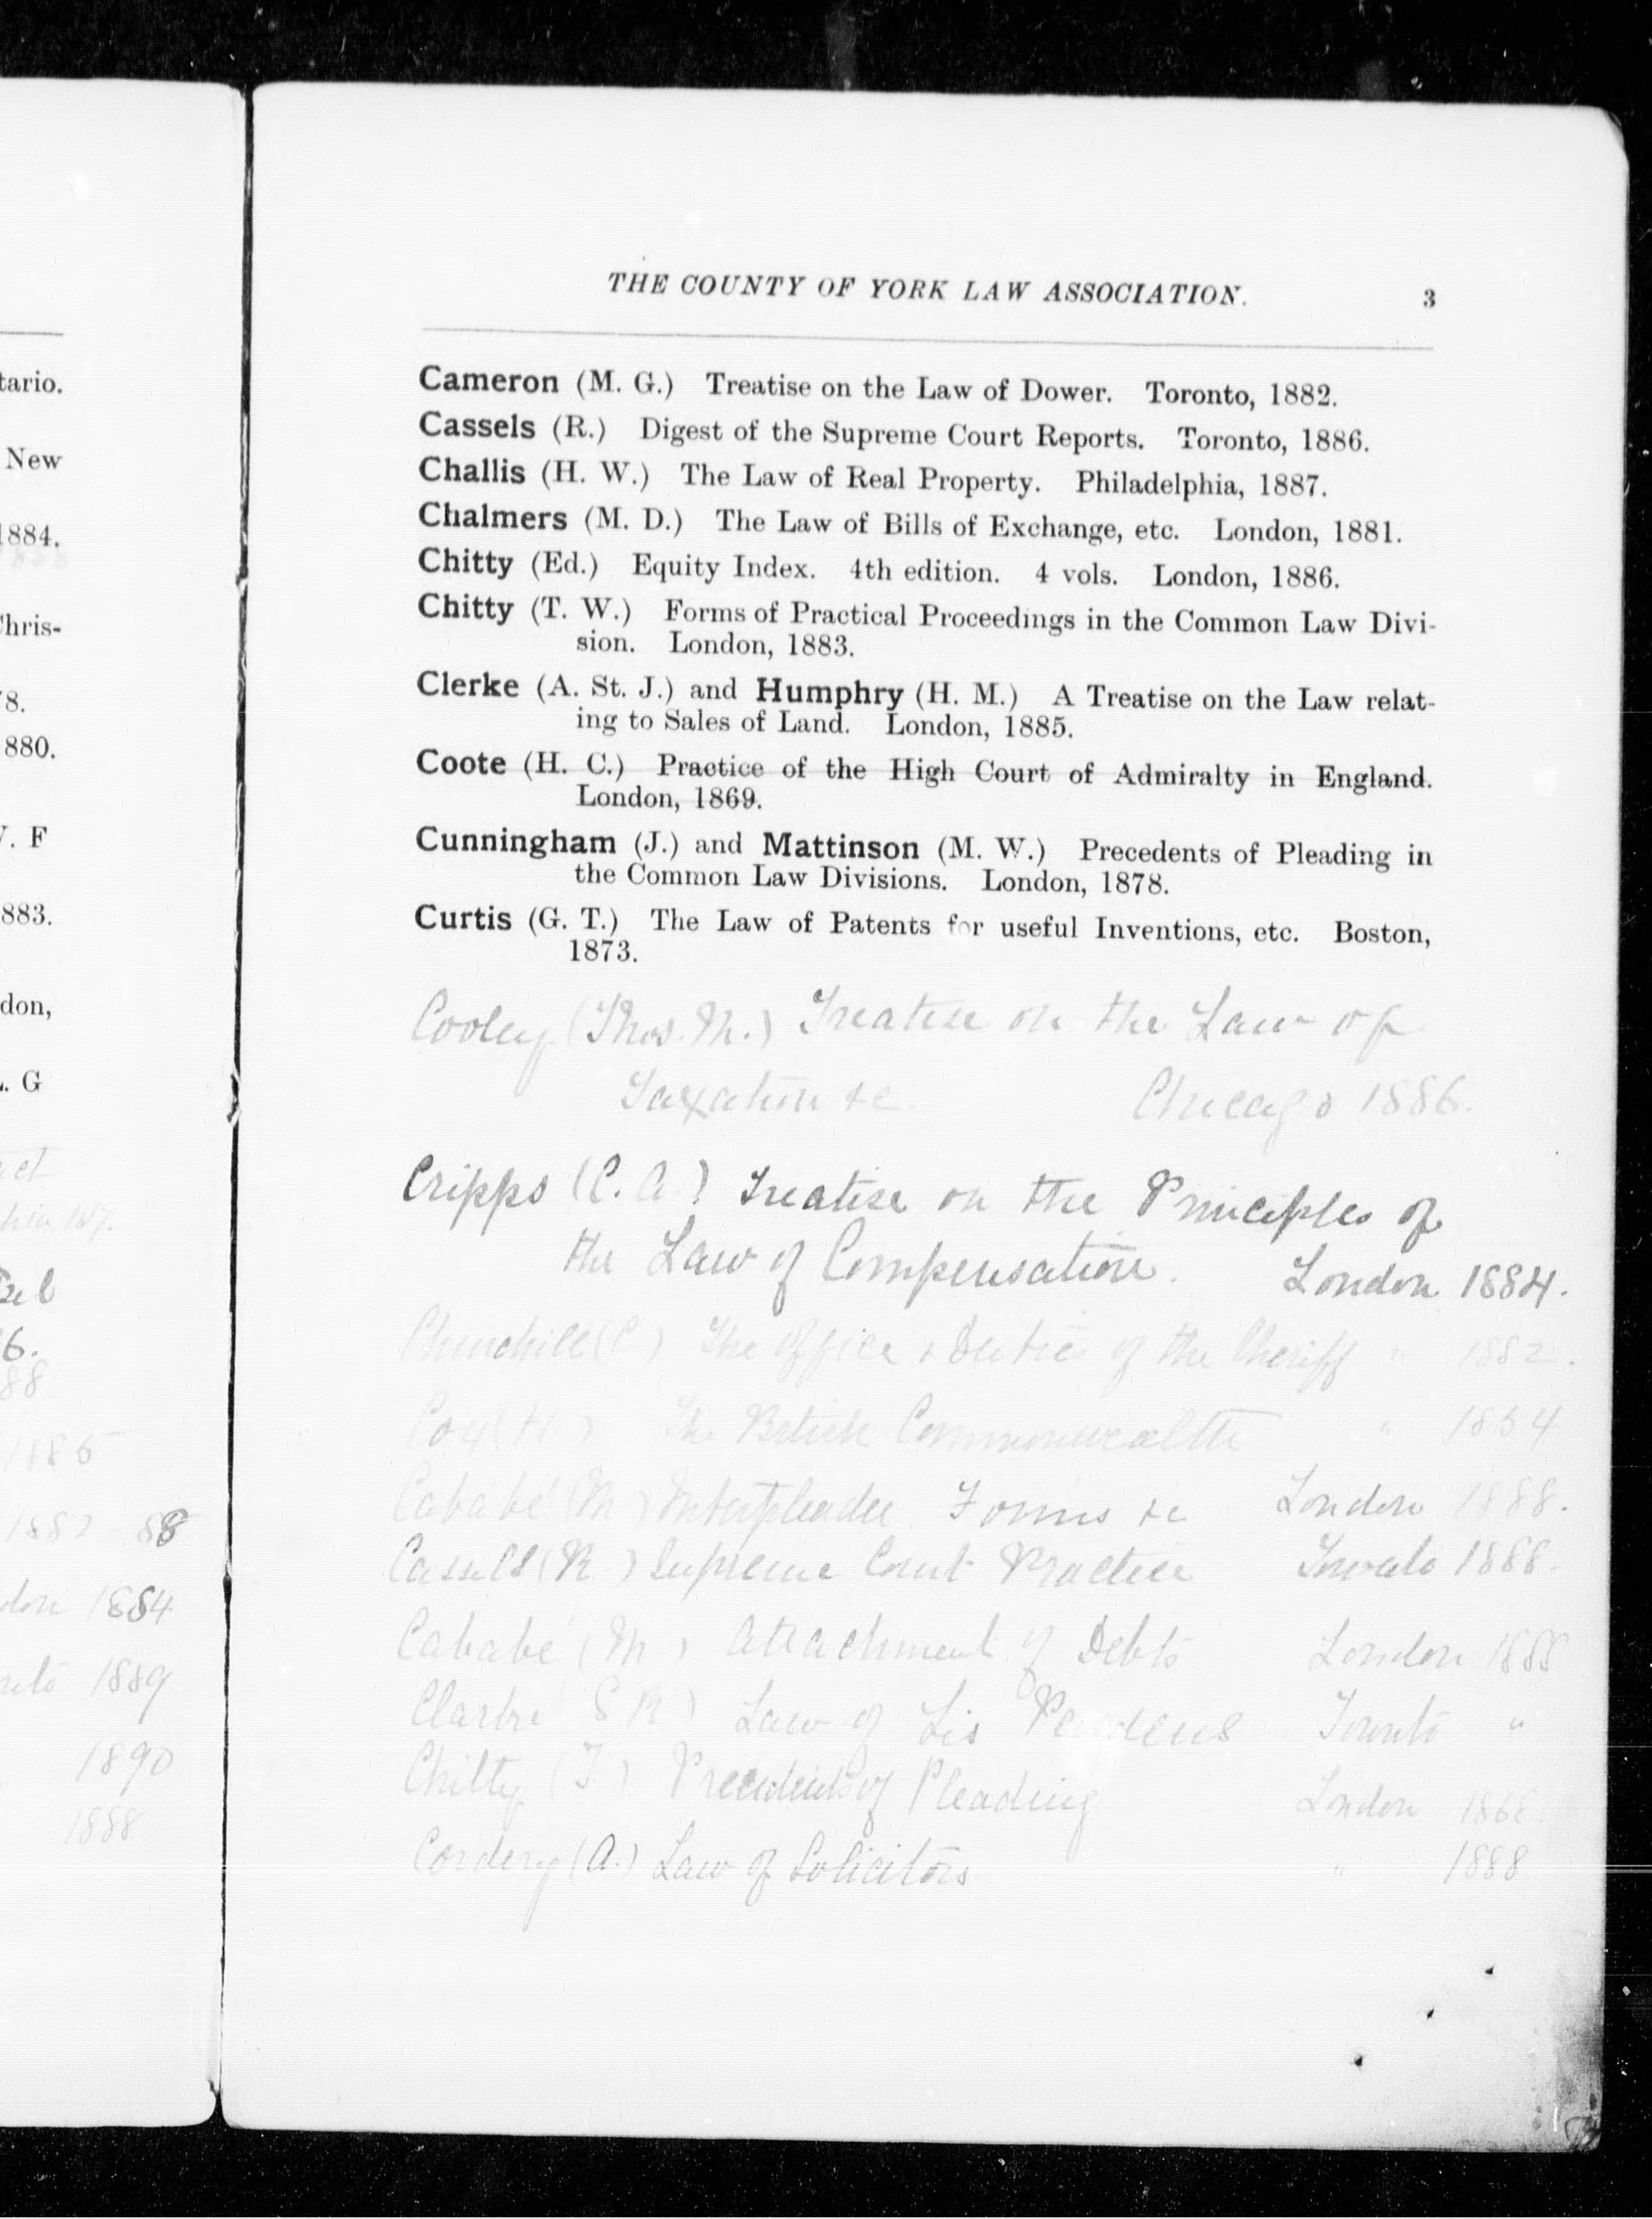 THE COUNTY OF YORK LAW ASSOCIATION. 3
Cameron (M. G.) Treatise on the Law of Dower. Toronto, 1882.
Cassels (R.) Digest of the Supreme Court Reports. Toronto, 1886.
Challis (H. W.) The Law of Real Property. Philadelphia, 1887.
Chalmers (M. D.) The Law of Bills of Exchange, etc. London, 1881.
Chitty (Ed.) Equity Index. 4th edition. 4 vols. London, 1886.
Chitty (T. W.) Forms of Practical Proceedings in the Common Law Divi-
sion. London, 1883.
Clerke (A. St. J.) and Humphry (H. M.) A Treatise on the Law relat-
ing to Sales of Land. London, 1885.
Coote (H. C.) Practice of the High Court of Admiralty in England.
London, 1869.
Cunningham (J.) and Mattinson (M. W.) Precedents of Pleading in
the Common Law Divisions. London, 1878.
Curtis (G. T.) The Law of Patents for useful Inventions, etc. Boston,
1873.
Cooley (Thos. M.) Treatise on the Law of
Taxation &c. Chicago 1886.
Cripps (C. A.) Treatise on the Principles of
the Law of Compensation. London 1884.
Churchill (C) The Office & Duties of the Sheriff " 1882.
Cox (H) The British Commonwealth " 1854
Cababé (M) Interpleader Forms &c London 1888.
Cassels (R.) Supreme Court Practice Toronto 1888.
Cababé (M) Attachment of Debts London 1888
Clarke (S R) Law of Lis Pendens Toronto "
Chitty (T.) Precedents of Pleading London 1868.
Cordery (A.) Law of Solicitors " 1888
tario.
New
1884.
Chris-
78.
1880.
W. F
1883.
don,
L. G
6.
88
1885
1882-88
don 1884
nto 1889
1890
1888